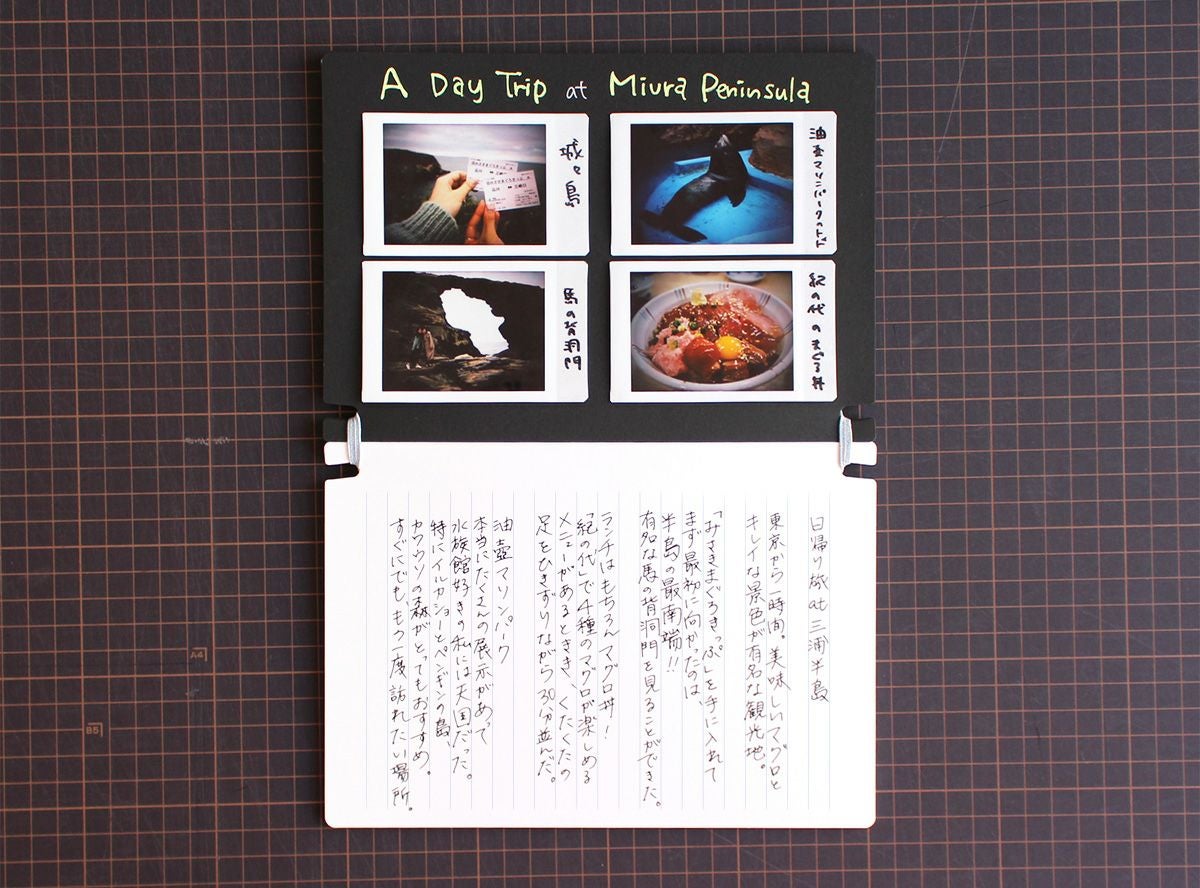 A Day Trip at Miura Peninsula
城ヶ島
油壺マリンパークのトド
馬の背洞門
紀の代のまぐろ丼
日帰り旅at三浦半島
東京から一時間。美味しいマグロと
キレイな景色が有名な観光地。
「みさきまぐろきっぷ」を手に入れて
まず最初に向かったのは、
半島の最南端!!
有名な馬の背洞門を見ることができた。
ランチはもちろんマグロ丼!
「紀の代」で4種のマグロが楽しめる
メニューがあるときき、くたくたの
足をひきずりながら30分並んだ。
油壺マリンパーク
本当にたくさんの展示があって
水族館好きの私には天国だった。
特にイルカショーとペンギンの島、
カワウソの森がとってもおすすめ。
すぐにでももう一度訪れたい場所。
A4
B5